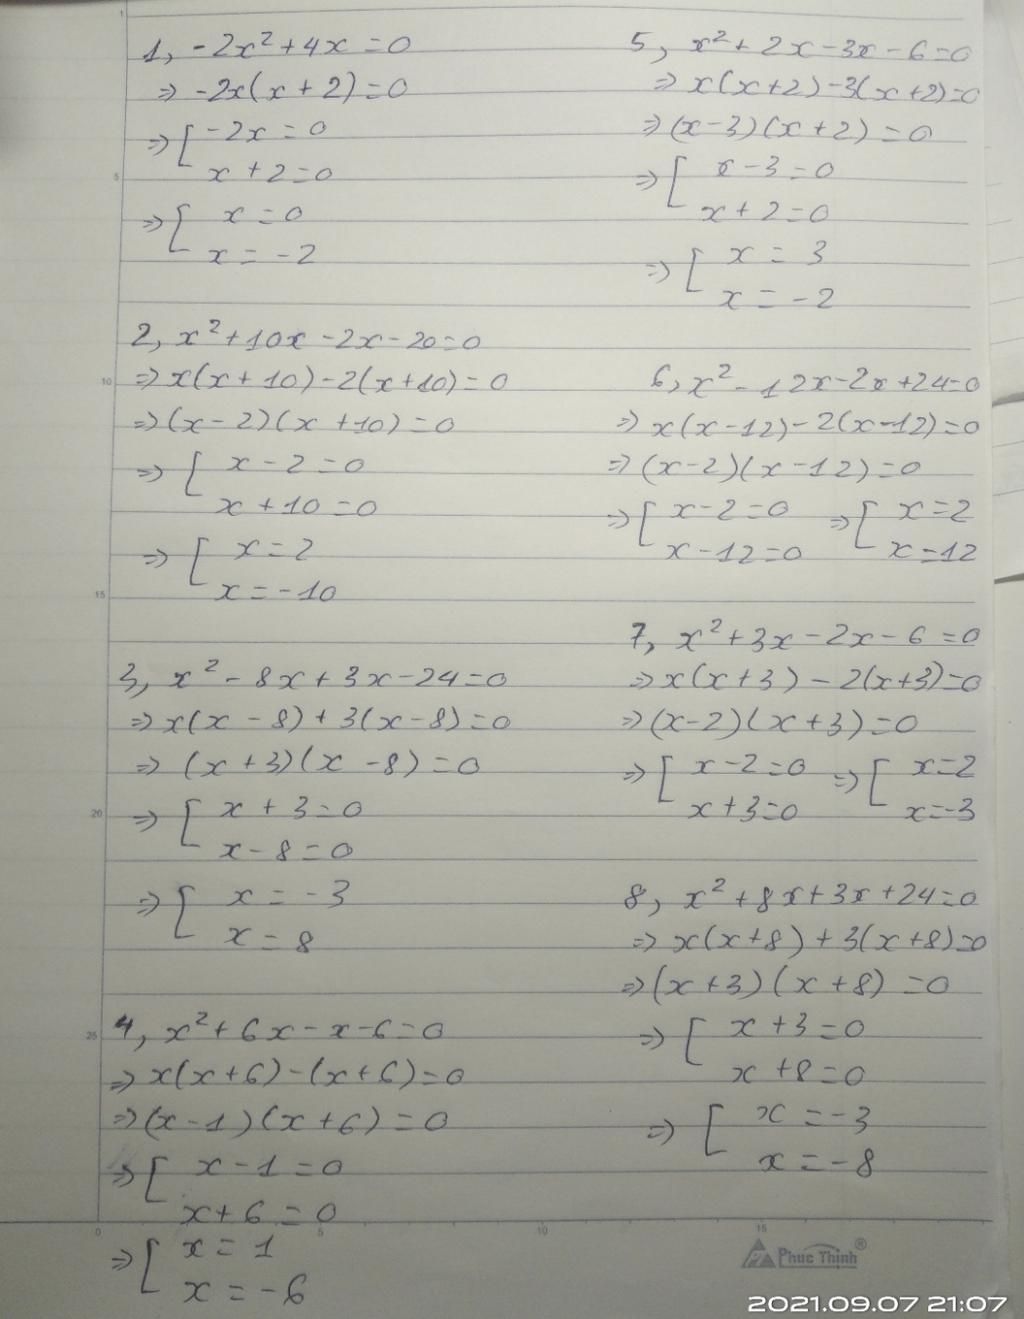 1, -2x² + 4x = 0
=> -2x(x + 2) = 0
=> [ -2x = 0
x + 2 = 0
=> [ x = 0
x = -2
2, x² + 10x - 2x - 20 = 0
=> x(x + 10) - 2(x + 10) = 0
=> (x - 2)(x + 10) = 0
=> [ x - 2 = 0
x + 10 = 0
=> [ x = 2
x = -10
3, x² - 8x + 3x - 24 = 0
=> x(x - 8) + 3(x - 8) = 0
=> (x + 3)(x - 8) = 0
=> [ x + 3 = 0
x - 8 = 0
=> [ x = -3
x = 8
4, x² + 6x - x - 6 = 0
=> x(x + 6) - (x + 6) = 0
=> (x - 1)(x + 6) = 0
=> [ x - 1 = 0
x + 6 = 0
=> [ x = 1
x = -6
5, x² + 2x - 3x - 6 = 0
=> x(x + 2) - 3(x + 2) = 0
=> (x - 3)(x + 2) = 0
=> [ x - 3 = 0
x + 2 = 0
=> [ x = 3
x = -2
6, x² - 12x - 2x + 24 = 0
=> x(x - 12) - 2(x - 12) = 0
=> (x - 2)(x - 12) = 0
=> [ x - 2 = 0 => [ x = 2
x - 12 = 0 x = 12
7, x² + 3x - 2x - 6 = 0
=> x(x + 3) - 2(x + 3) = 0
=> (x - 2)(x + 3) = 0
=> [ x - 2 = 0 => [ x = 2
x + 3 = 0 x = -3
8, x² + 8x + 3x + 24 = 0
=> x(x + 8) + 3(x + 8) = 0
=> (x + 3)(x + 8) = 0
=> [ x + 3 = 0
x + 8 = 0
=> [ x = -3
x = -8
1
5
10
15
20
25
0 5 10 15
Phuc Thinh®
2021.09.07 21:07